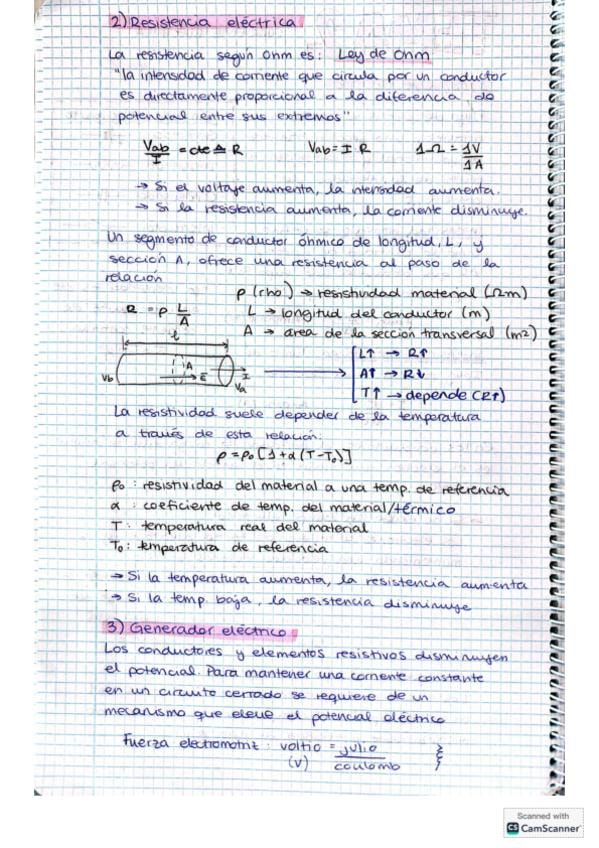 2) Resistencia eléctrica
La resistencia según Ohm es: Ley de Ohm
"la intensidad de corriente que circula por un conductor
es directamente proporcional a la diferencia de
potencial entre sus extremos"
Vab/I = cte ≜ R Vab = I R 1Ω = 1V/1A
→ Si el voltaje aumenta, la intensidad aumenta.
→ Si la resistencia aumenta, la corriente disminuye.
Un segmento de conductor óhmico de longitud, L, y
sección A, ofrece una resistencia al paso de la
relación
ρ (rho) → resistividad material (Ωm)
R = ρ L/A
L → longitud del conductor (m)
A → area de la sección transversal (m2)
L
Vb A E I Va
L↑ → R↑
A↑ → R↓
T↑ → depende (R↑)
La resistividad suele depender de la temperatura
a través de esta relación:
ρ = ρ₀ [1 + α (T - T₀)]
ρ₀ : resistividad del material a una temp. de referencia
α : coeficiente de temp. del material/térmico
T : temperatura real del material
T₀ : temperatura de referencia
→ Si la temperatura aumenta, la resistencia aumenta
→ Si la temp. baja, la resistencia disminuye
3) Generador eléctrico
Los conductores y elementos resistivos disminuyen
el potencial. Para mantener una corriente constante
en un circuito cerrado se requiere de un
mecanismo que eleve el potencial eléctrico
Fuerza electromotriz : voltio (V) = julio/coulomb
Scanned with
CS CamScanner